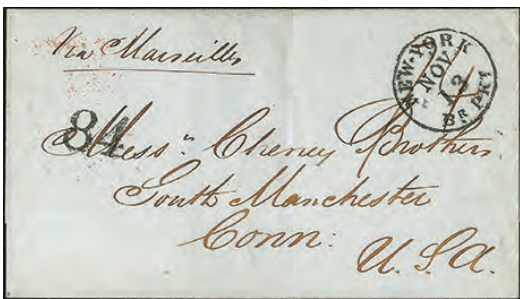 Via Marseilles
NEW-YORK
NOV
BR PKT
84
Mess^rs Cheney Brothers
South Manchester
Conn:
U.S.A.